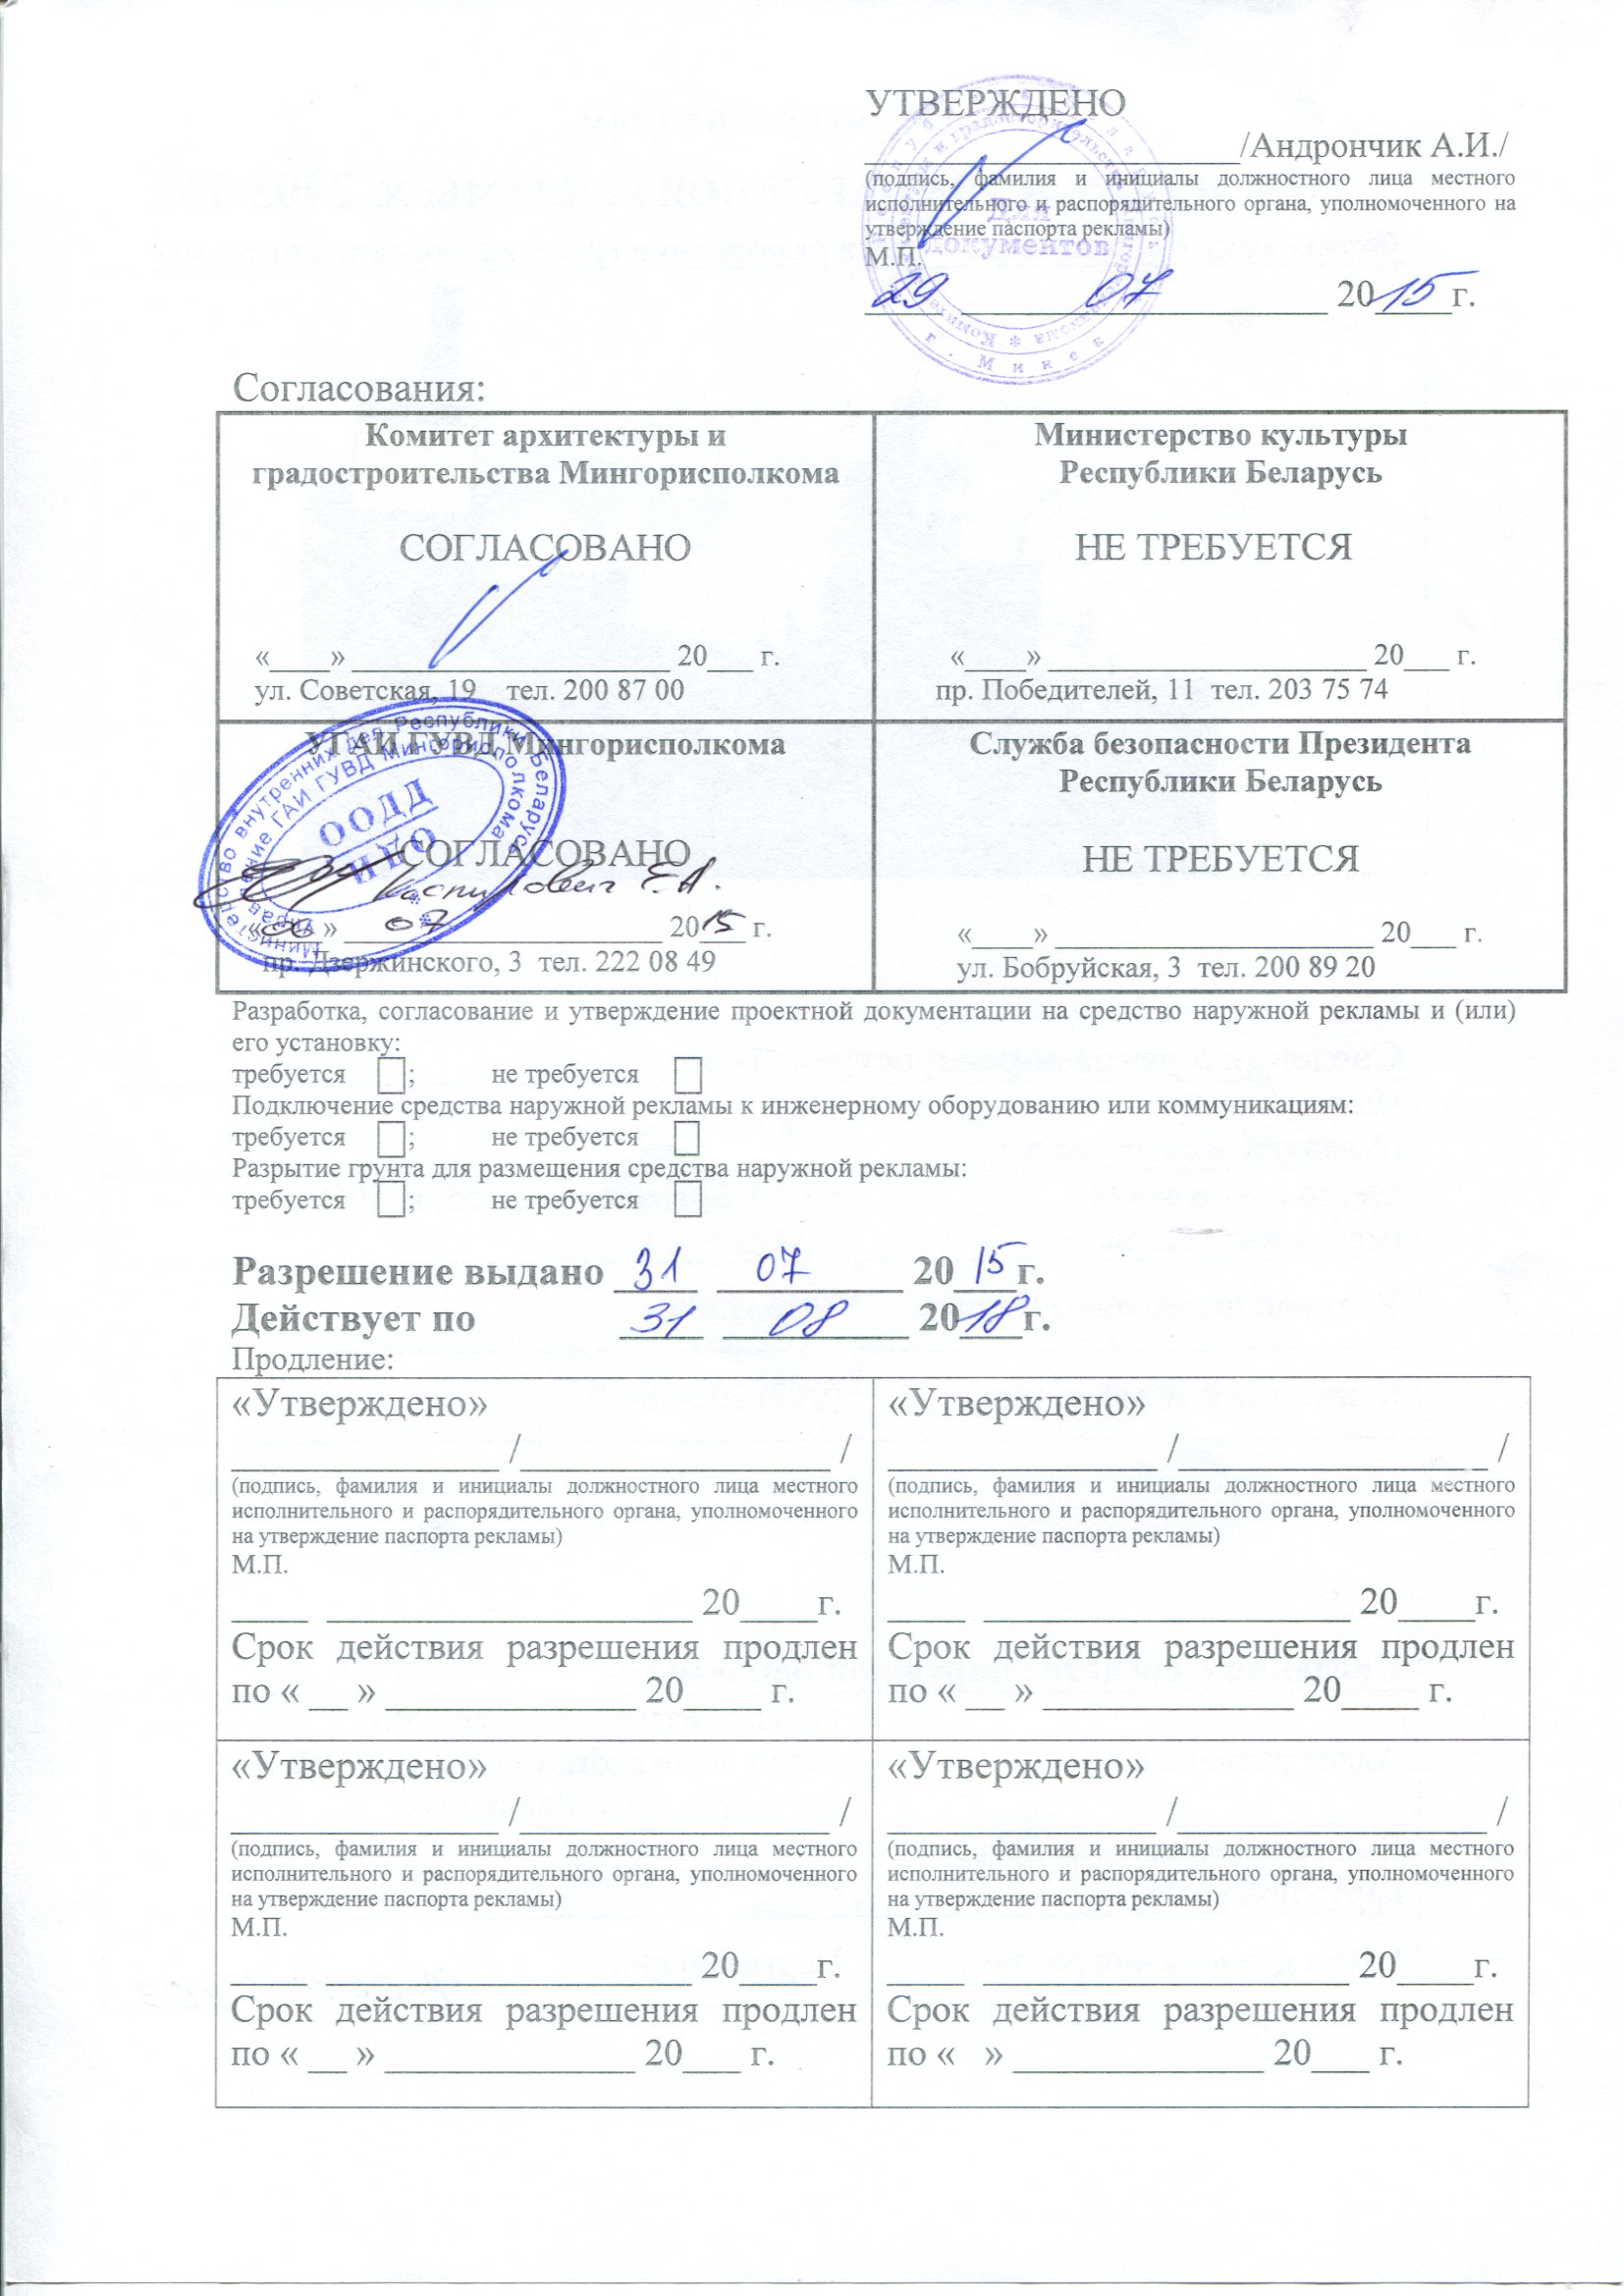 УТВЕРЖДЕНО
____________________/Андрончик А.И./
(подпись, фамилия и инициалы должностного лица местного
исполнительного и распорядительного органа, уполномоченного на
утверждение паспорта рекламы)
М.П.
29 07 2015 г.
Для
документов
г. Минск
Согласования:
Комитет архитектуры и
градостроительства Мингорисполкома
СОГЛАСОВАНО
«____» ____________________ 20___ г.
ул. Советская, 19 тел. 200 87 00
Министерство культуры
Республики Беларусь
НЕ ТРЕБУЕТСЯ
«____» ____________________ 20___ г.
пр. Победителей, 11 тел. 203 75 74
УГАИ ГУВД Мингорисполкома
СОГЛАСОВАНО
Е.А.
« » 07 2015 г.
пр. Дзержинского, 3 тел. 222 08 49
Министерство внутренних дел Республики Беларусь
Управление ГАИ ГУВД Мингорисполкома
ООДД
ОДИ
Служба безопасности Президента
Республики Беларусь
НЕ ТРЕБУЕТСЯ
«____» ____________________ 20___ г.
ул. Бобруйская, 3 тел. 200 89 20
Разработка, согласование и утверждение проектной документации на средство наружной рекламы и (или)
его установку:
требуется ☐; не требуется ☐
Подключение средства наружной рекламы к инженерному оборудованию или коммуникациям:
требуется ☐; не требуется ☐
Разрытие грунта для размещения средства наружной рекламы:
требуется ☐; не требуется ☐
Разрешение выдано 31 07 2015 г.
Действует по 31 08 2018 г.
Продление:
«Утверждено»
______________ /________________ /
(подпись, фамилия и инициалы должностного лица местного
исполнительного и распорядительного органа, уполномоченного
на утверждение паспорта рекламы)
М.П.
____ ___________________ 20____г.
Срок действия разрешения продлен
по « __ » _____________ 20____ г.
«Утверждено»
______________ /________________ /
(подпись, фамилия и инициалы должностного лица местного
исполнительного и распорядительного органа, уполномоченного
на утверждение паспорта рекламы)
М.П.
____ ___________________ 20____г.
Срок действия разрешения продлен
по « __ » _____________ 20____ г.
«Утверждено»
______________ /________________ /
(подпись, фамилия и инициалы должностного лица местного
исполнительного и распорядительного органа, уполномоченного
на утверждение паспорта рекламы)
М.П.
____ ___________________ 20____г.
Срок действия разрешения продлен
по « __ » _____________ 20___ г.
«Утверждено»
______________ /________________ /
(подпись, фамилия и инициалы должностного лица местного
исполнительного и распорядительного органа, уполномоченного
на утверждение паспорта рекламы)
М.П.
____ ___________________ 20____г.
Срок действия разрешения продлен
по « » _____________ 20___ г.